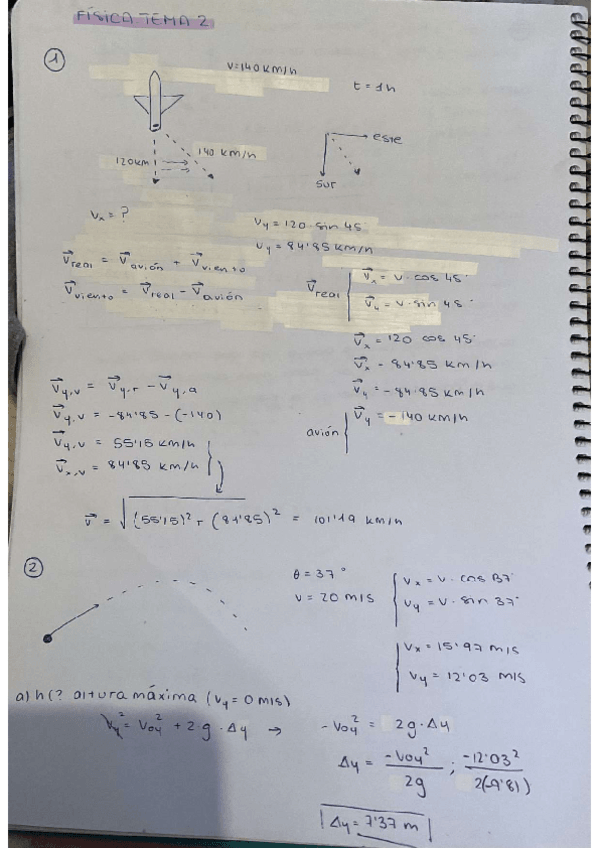 FÍSICA TEMA 2
1
v=140 km/h
t = 1h
120km
140 km/h
este
sur
Vx = ?
Vy = 120 · sin 45
Vy = 84'85 km/h
V⃗real = V⃗avión + V⃗viento
V⃗viento = V⃗real - V⃗avión
V⃗real
V⃗x = V · cos 45°
V⃗y = V · sin 45°
V⃗x = 120 cos 45°
V⃗x = 84'85 km/h
V⃗y = -84'85 km/h
avión
V⃗y = -140 km/h
V⃗y,v = V⃗y,r - V⃗y,a
V⃗y,v = -84'85 - (-140)
V⃗y,v = 55'15 km/h
V⃗x,v = 84'85 km/h
V⃗ = √(55'15)² + (84'85)² = 101'19 km/h
2
θ = 37°
v = 20 m/s
Vx = V · cos 37°
Vy = V · sin 37°
Vx = 15'97 m/s
Vy = 12'03 m/s
a) h(? altura máxima (Vy = 0 m/s)
Vy² = Voy² + 2·g · Δy →
-Voy² = 2g · Δy
Δy = -Voy²/2g ; -12'03²/2(-9'81)
Δy = 7'37 m